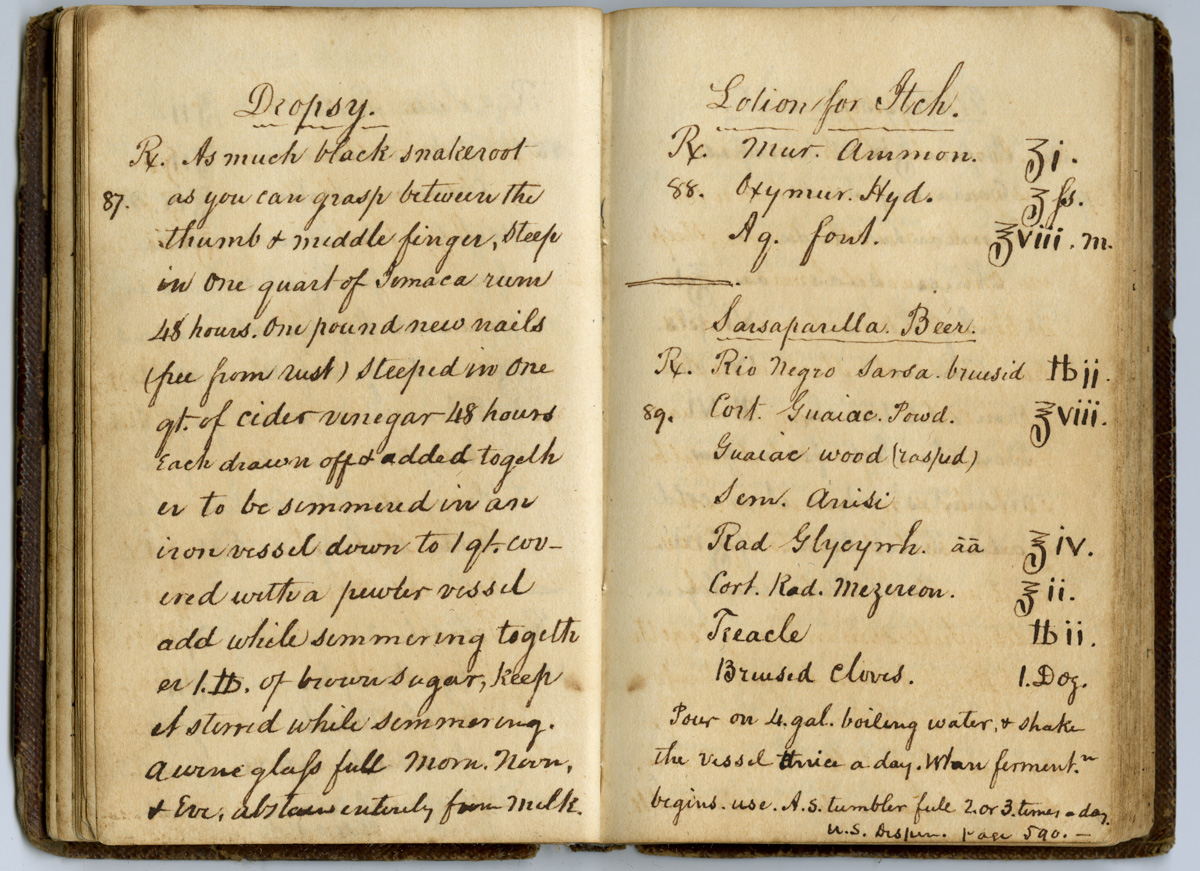 Dropsy.
℞. As much black snakeroot
87. as you can grasp between the
thumb & middle finger, steep
in One quart of Jemaca rum
48 hours. One pound new nails
(free from rust) steeped in One
qt. of cider vinegar 48 hours
Each drawn off & added togeth
er to be simmered in an
iron vessel down to 1 qt. cov-
ered with a pewter vessel
add while simmering togeth
er 1. ℔. of brown sugar, keep
it stirred while simmering.
A wine glass full Morn. Noon,
& Eve, abstain entirely from Milk.
Lotion for Itch.
℞. Mur. Ammon. ʒi.
88. Oxymur. Hyd. ʒſs.
Aq. font. ℥viii. m.
Sarsaparilla Beer.
℞. Rio Negro Sarsa. bruisid ℔ii.
89. Cort. Guaiac. Powd. ℥viii.
Guaiac wood (rasped)
Sem. Anisi
Rad Glycyrrh. āā ℥iv.
Cort. Rad. Mezereon. ℥ii.
Treacle ℔ii.
Bruised Cloves. 1. Doz.
Pour on 4. gal. boiling water, & shake
the vessel thrice a day. Whan ferment.ⁿ
begins. use. A. S. tumbler full 2. or 3. times a day.
U.S. Dispen. page 590. —